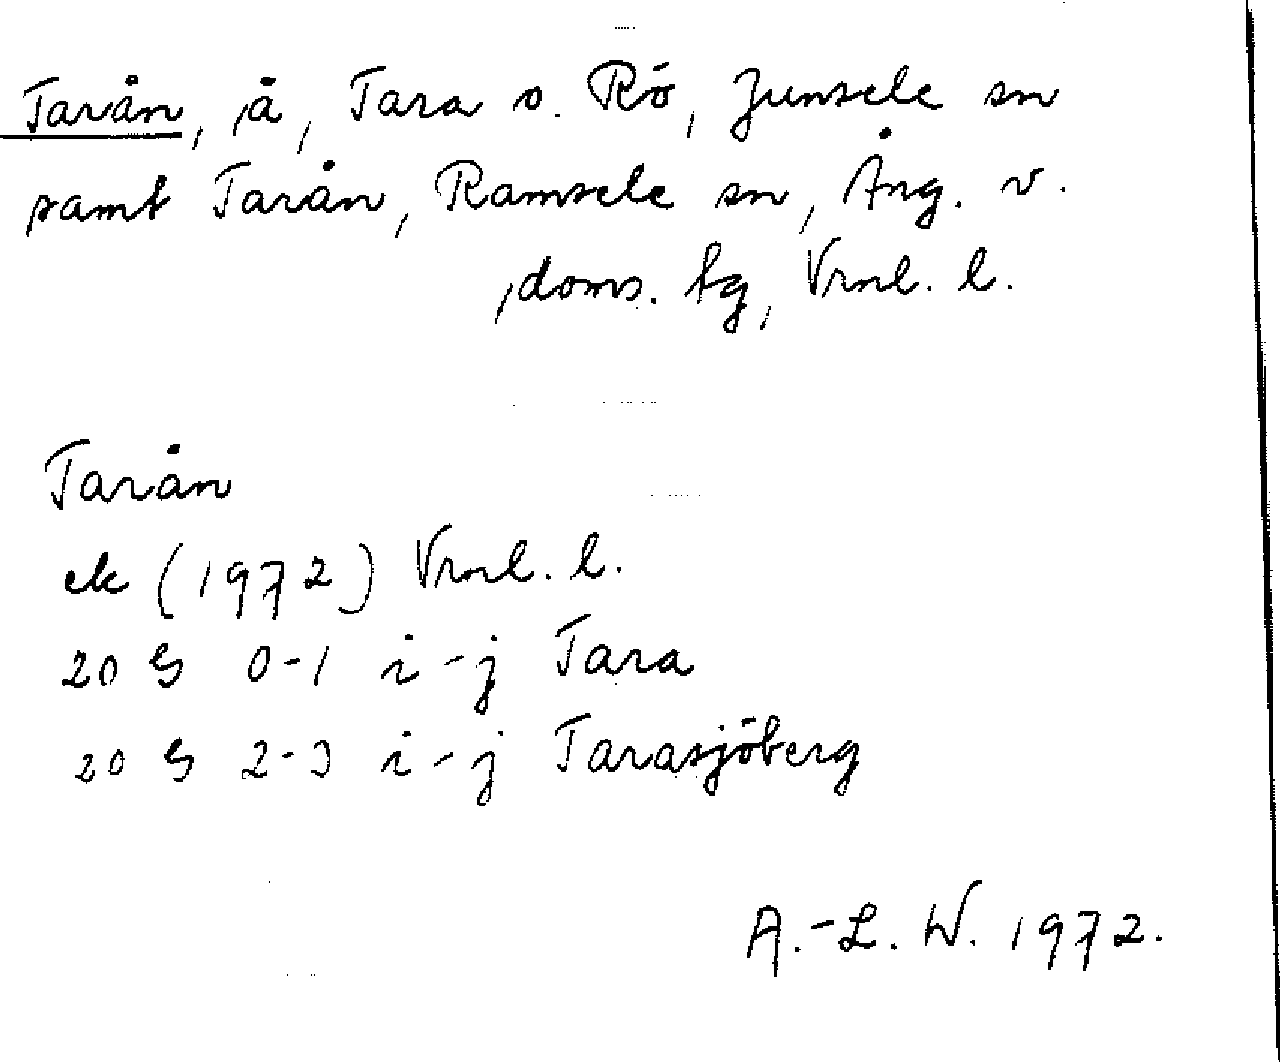 Tarån, å, Tara o. Rö, Junsele sn
samt Tarån, Ramsele sn, Ång. v.
doms. tg, Vrnl. l.
Tarån
ek (1972) Vrnl. l.
20 G 0-1 i-j Tara
20 G 2-3 i-j Tarasjöberg
A.-L. W. 1972.